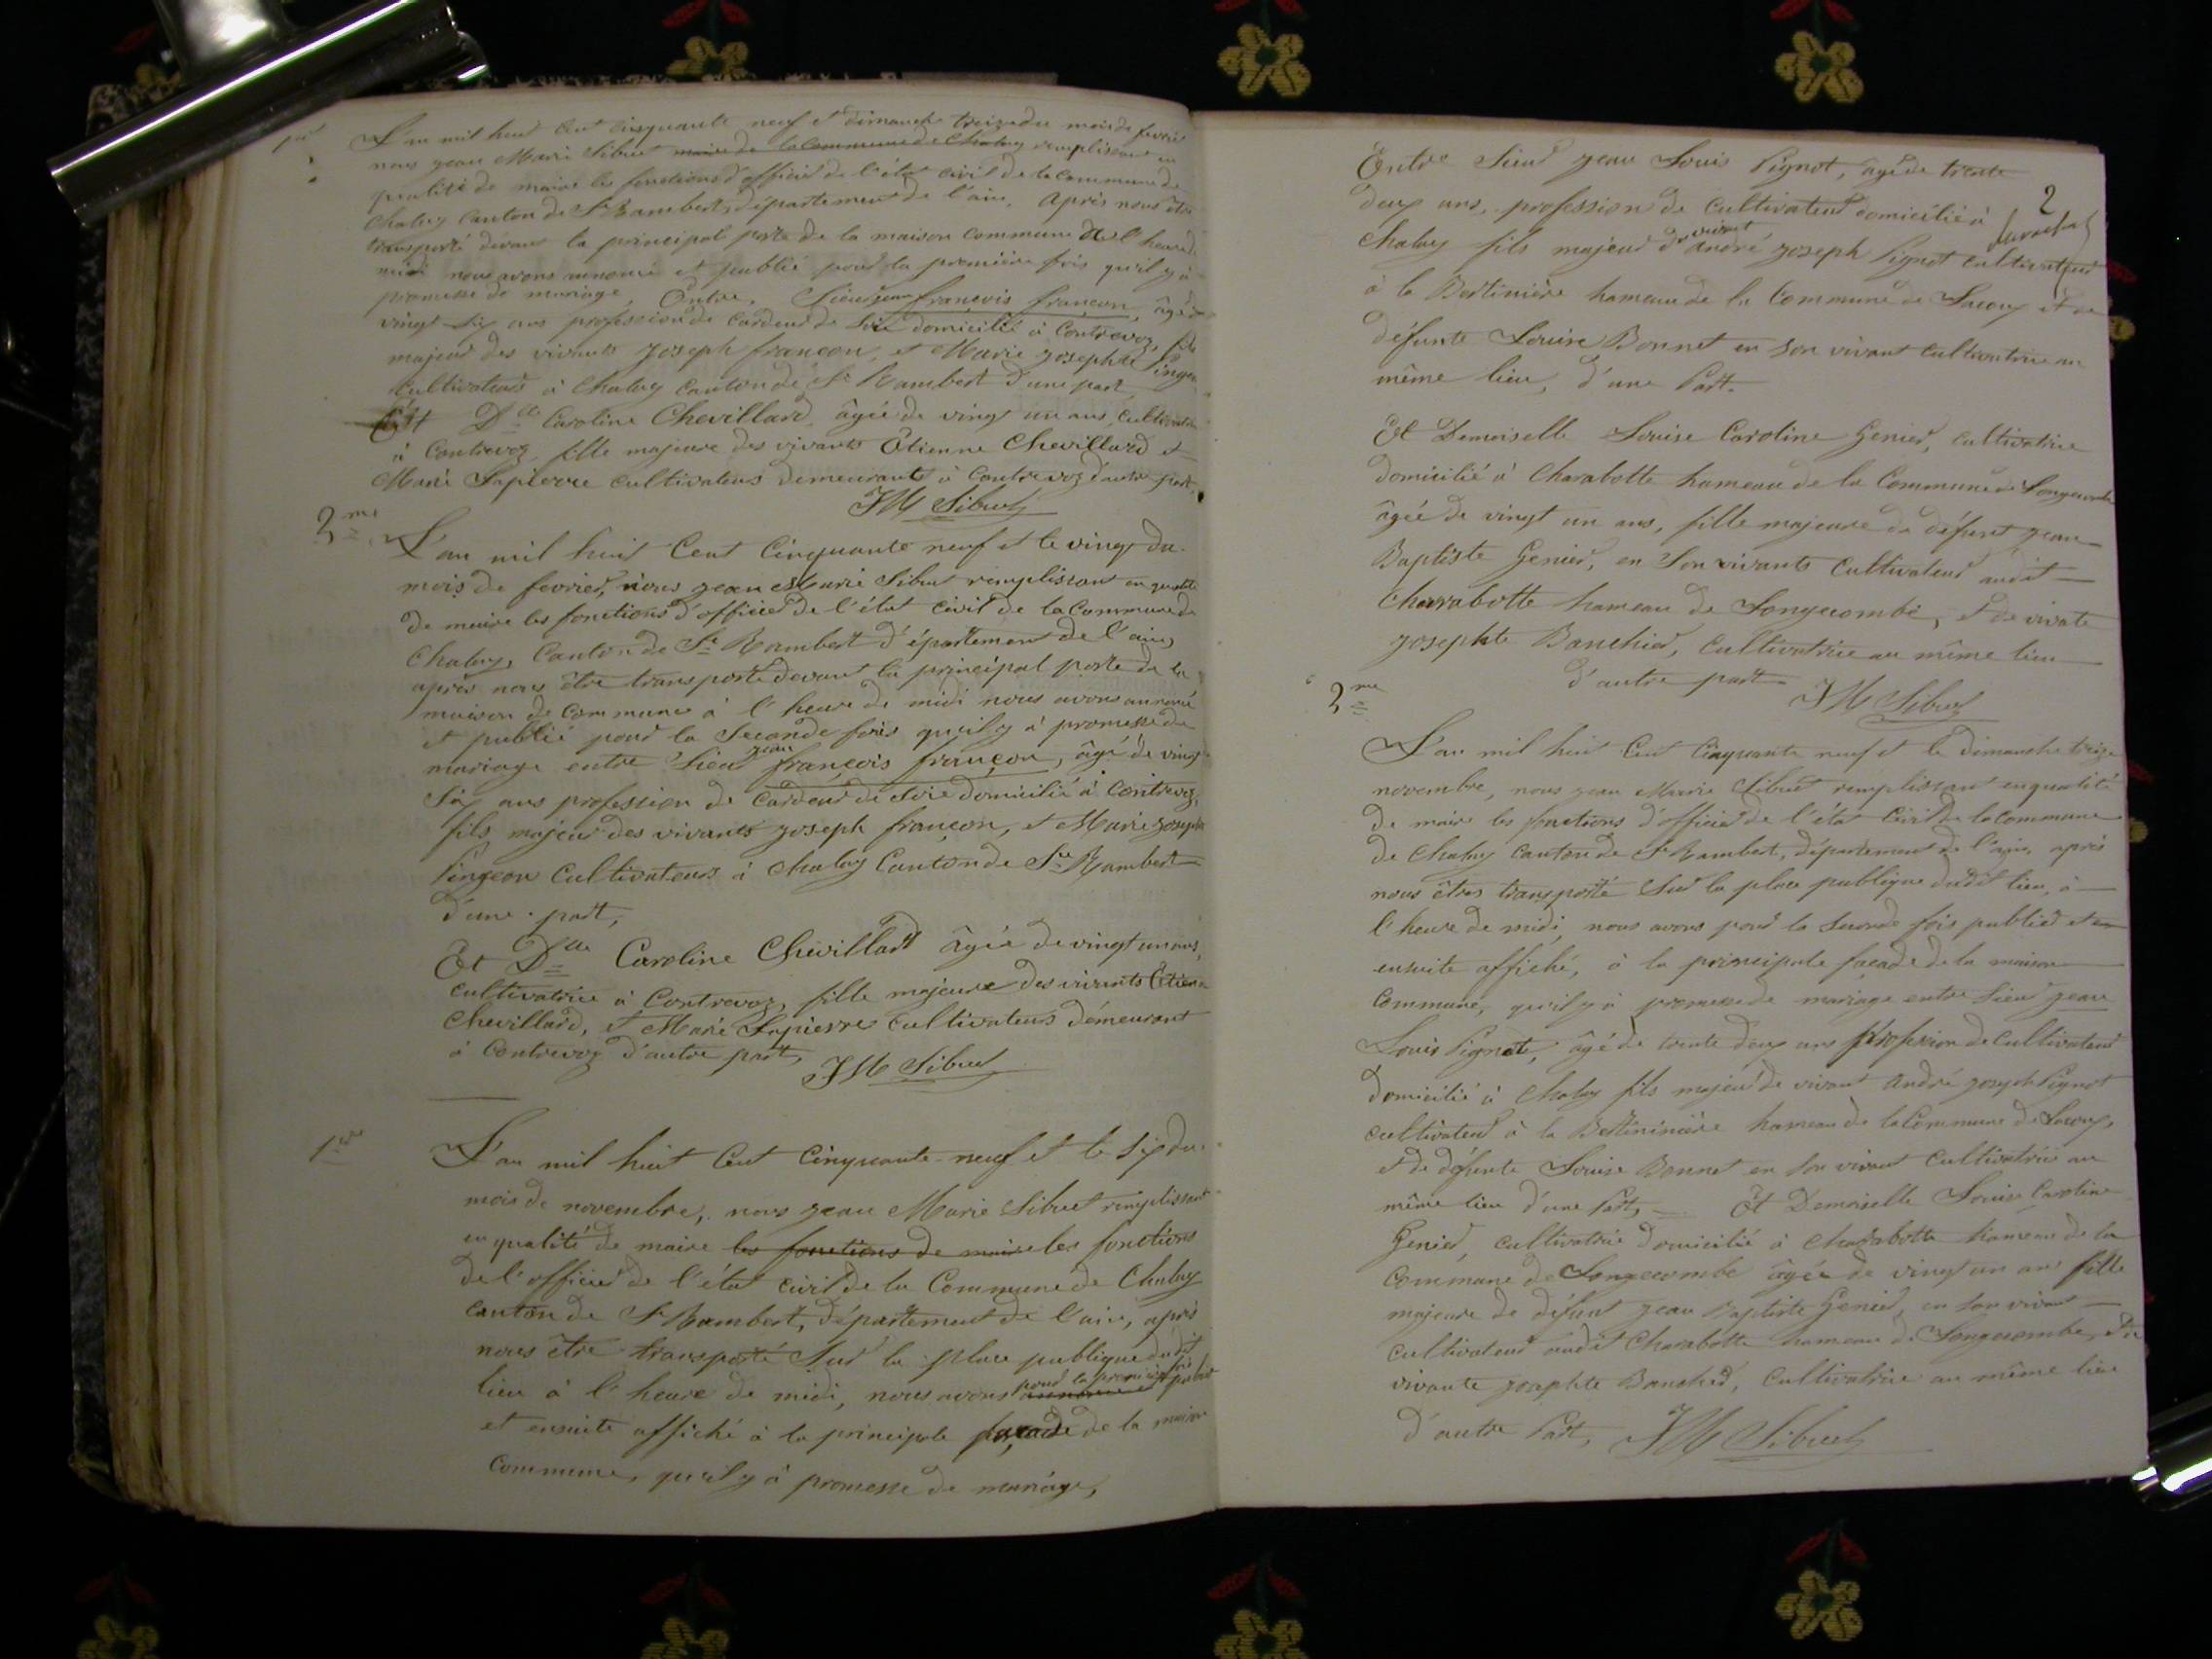 L'an mil huit cent cinquante neuf et dimanche treize du mois de fevrier
nous jean Marie Sibuet maire de la Commune de Chaley remplissant en
qualité de maire les fonctions d'officier de l'état civil de la Commune de
Chaley Canton de St Rambert, département de l'ain, après nous être
transporté devant la principal porte de la maison commune de l'heure de
midi nous avons annoncé et publié pour la première fois qu'il y à
promesse de mariage, Entre, Sieur jean françois françon, âgé de
vingt six ans profession de Cardeur de soie domicilié à Contrevoz, fils
majeur des vivants joseph françon, et Marie josephte Pingeon
Cultivateurs à Chaley Canton de St Rambert d'une part
Et Dlle Caroline Chevillard, âgée de vingt un ans, Cultivatrice
à Contrevoz fille majeure des vivants Étienne Chevillard et
Marie Lapierre Cultivateurs demeurants à Contrevoz d'autre part.
JM Sibuet
2me
L'an mil huit Cent Cinquante neuf et le vingt du
mois de fevrier, nous jean Marie Sibuet remplissant en qualité
de maire les fonctions d'officier de l'état Civil de la Commune de
Chaley, Canton de St Rambert d'épartement de l'ain,
après nous être transporté devant la principal porte de la
maison de Commune à l'heure de midi nous avons annoncé
et publié pour la Seconde fois qu'il y à promesse de
mariage entre Sieur jean françois françon, âgé de vingt
Six ans profession de Cardeur de Soie domicilié à Contrevoz,
fils majeur des vivants joseph françon, et Marie josephte
Pingeon Cultivateurs à Chaley Canton de St Rambert
d'une part,
Et Dlle Caroline Chevillard âgée de vingt un ans,
Cultivatrice à Contrevoz, fille majeure des vivants Étienne
Chevillard, et Marie Lapierre Cultivateurs démeurant
à Contrevoz d'autre part, JM Sibuet
1ère
L'an mil huit Cent Cinquante-neuf et le Six du
mois de novembre, nous jean Marie Sibuet remplissant
en qualité de maire les fonctions de maire les fonctions
de l'officier de l'état civil de la Commune de Chaley
canton de St Rambert, département de l'ain, après
nous être transporté Sur la place publique dudit
lieu à l'heure de midi, nous avons pour la première fois publié
et ensuite affiché à la principale façade de la maison
Commune, qu'il y à promesse de mariage,
Entre Sieur jean Louis Pignot, âgé de trente
2
deux ans, profession de Cultivateur domicilié à
Chaley fils majeur du vivant André joseph Pignot cultivateur
à la Bertinière hameau de la Commune de Lacoux et de
défunte Louise Bonnet en son vivant Cultivatrice au
même lieu, d'une Part.
Et Demoiselle Louise Caroline Genier, Cultivatrice
domicilié à Charabotte hameau de la Commune de Longecombe
âgée de vingt un ans, fille majeure de défunt jean
Baptiste Genier, en Son vivants Cultivateur audit
Charabotte hameau de Longecombe, et de vivate
josephte Banchier, Cultivatrice au même lieu
d'autre part. JM Sibuet
2me
L'an mil huit Cent Cinquante neuf et le Dimanche treize
novembre, nous jean Marie Sibuet remplissant en qualité
de maire les fonctions d'officier de l'état Civil de la Commune
de Chaley Canton de St Rambert, département de l'ain, après
nous êtres transporté Sur la place publique dudit lieu, à
l'heure de midi, nous avons pour la seconde fois publier et
ensuite affiché, à la principale façade de la maison
Commune, qu'il y à promesse de mariage entre Sieur jean
Louis Pignot, âgé de trente deux ans profession de Cultivateur
domicilié à Chaley fils majeur de vivant André joseph Pignot
cultivateur à la Bertininière hameau de la Commune de Lacoux,
et de défunte Louise Bonnet en son vivant Cultivatrice au
même lieu d'une Part, Et Demoiselle Louise Caroline
Genier, cultivatrice domicilié à Charabotte hameau de la
Commune de Longecombe âgée de vingt un ans fille
majeure de défunt jean Baptiste Genier, en son vivant
cultivateur audit Charabotte hameau de Longecombe, et de
vivante josephte Banchier, Cultivatrice au même lieu
d'autre Part, JM Sibuet